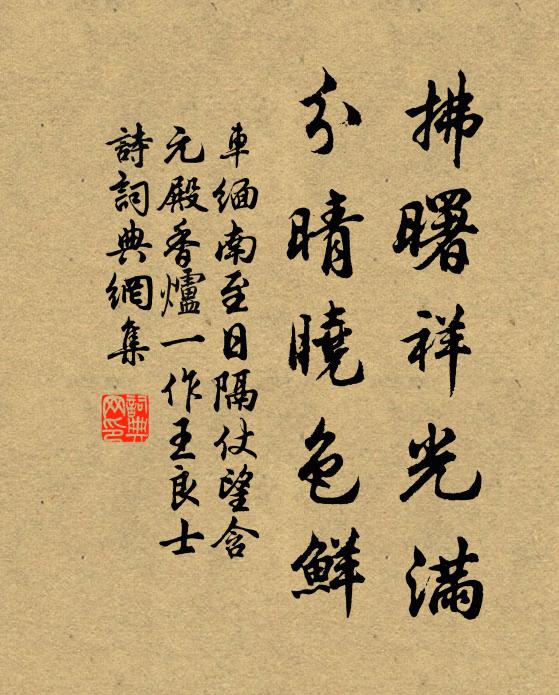 拂曙祥光滿
分晴曉色鮮
車緬南至日隔仗望含
元殿香爐一作王良士
詩詞典網集
詞典網印